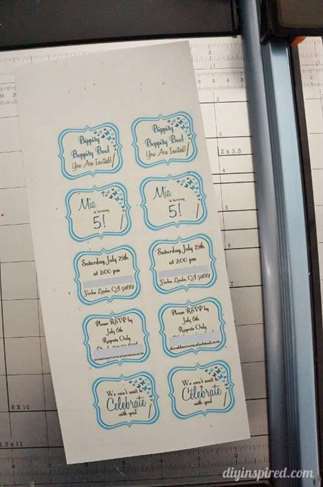 Bippity
Bobbity Boo!
You Are Invited!
Bippity
Bobbity Boo!
You Are Invited!
Mia
is turning
5!
Mia
is turning
5!
Saturday July 25th
at 2:00 pm
Saturday July 25th
at 2:00 pm
Please RSVP by
July 6th
Regrets Only
Please RSVP by
July 6th
Regrets Only
We can't wait
Celebrate
with you!
We can't wait
Celebrate
with you!
diyinspired.com